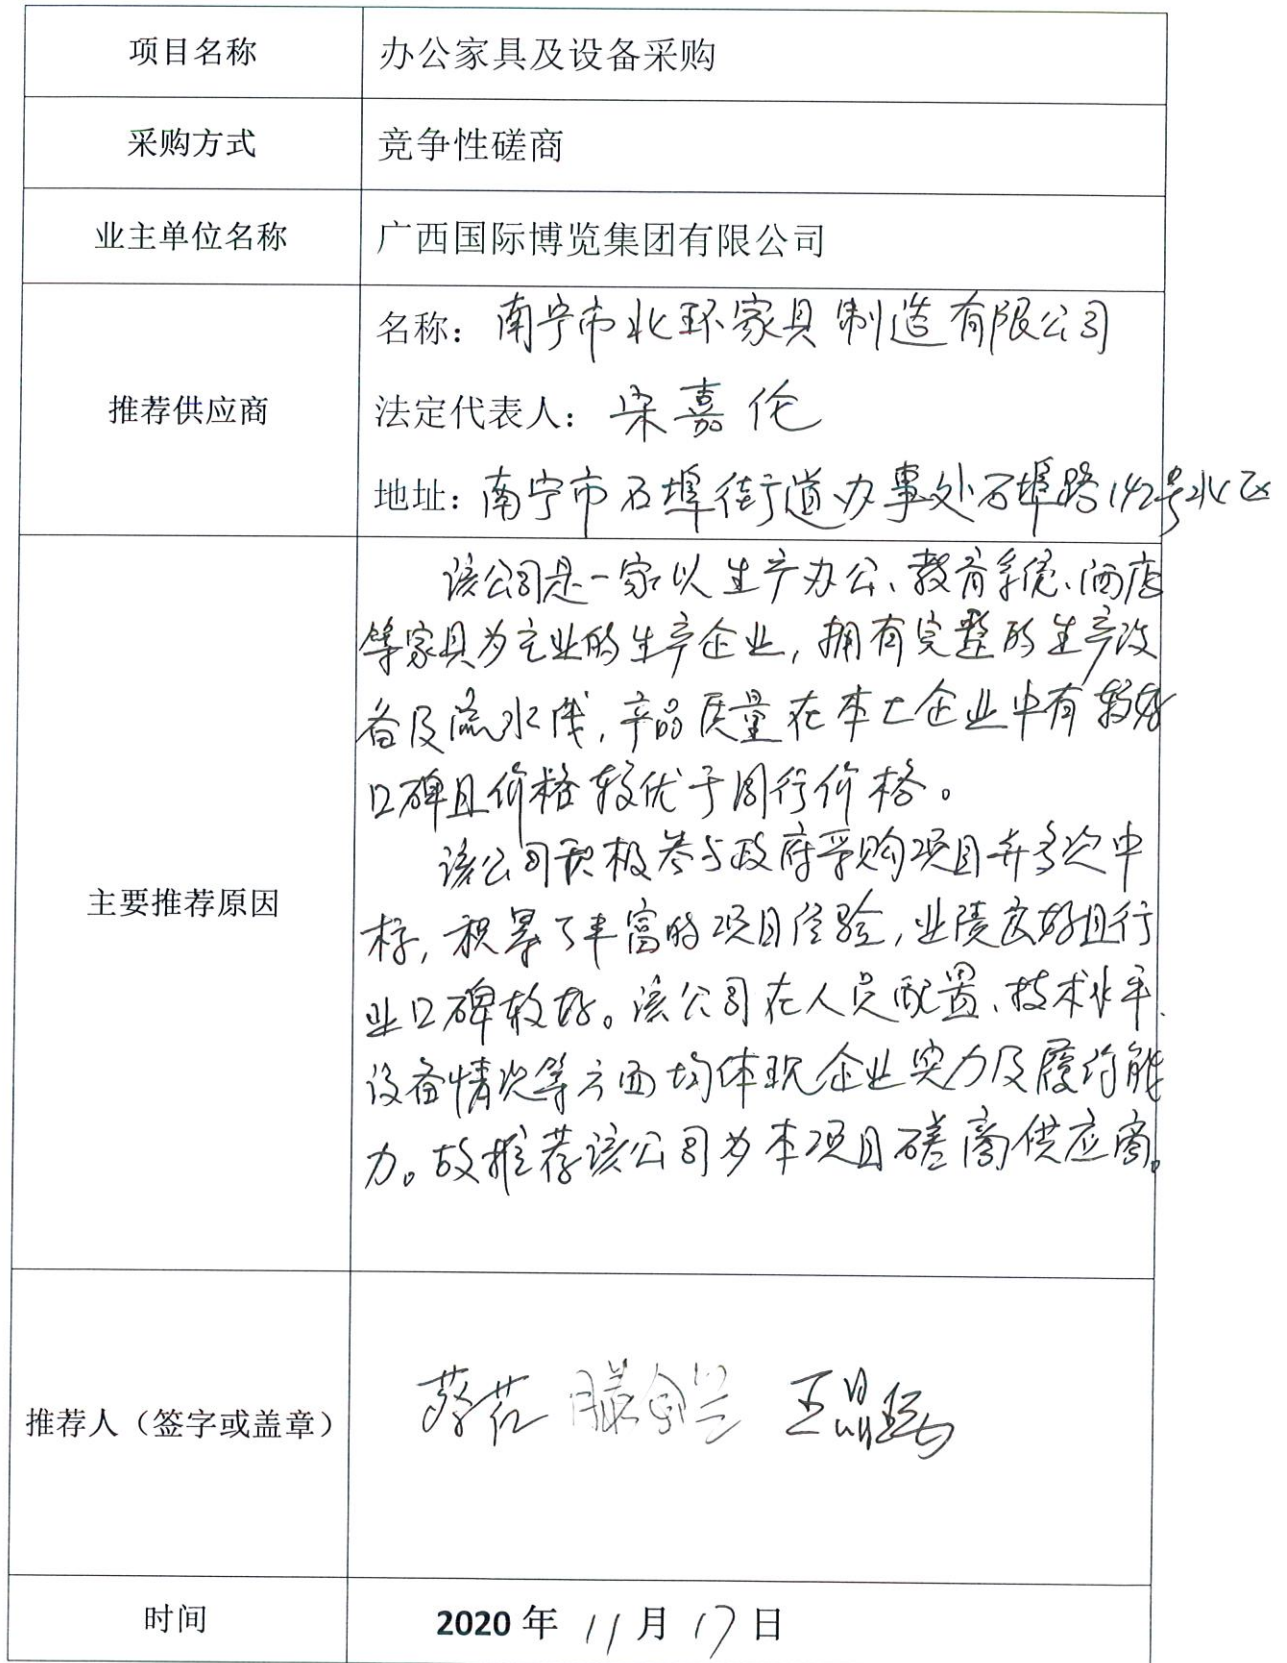 项目名称 办公家具及设备采购
采购方式 竞争性磋商
业主单位名称 广西国际博览集团有限公司
推荐供应商
名称：南宁市北环家具制造有限公司
法定代表人：梁嘉伦
地址：南宁市石埠街道办事处石埠路142号北区
主要推荐原因
该公司是一家以生产办公、教育系统、酒店
等家具为主业的生产企业，拥有完整的生产设
备及流水线，产品质量在本土企业中有较好
口碑且价格较优于同行价格。
该公司积极参与政府采购项目并多次中
标，积累了丰富的项目经验，业绩良好且行
业口碑较好。该公司在人员配置、技术水平、
设备情况等方面均体现企业实力及履约能
力。故推荐该公司为本项目磋商供应商。
推荐人（签字或盖章）
时间 2020年11月17日